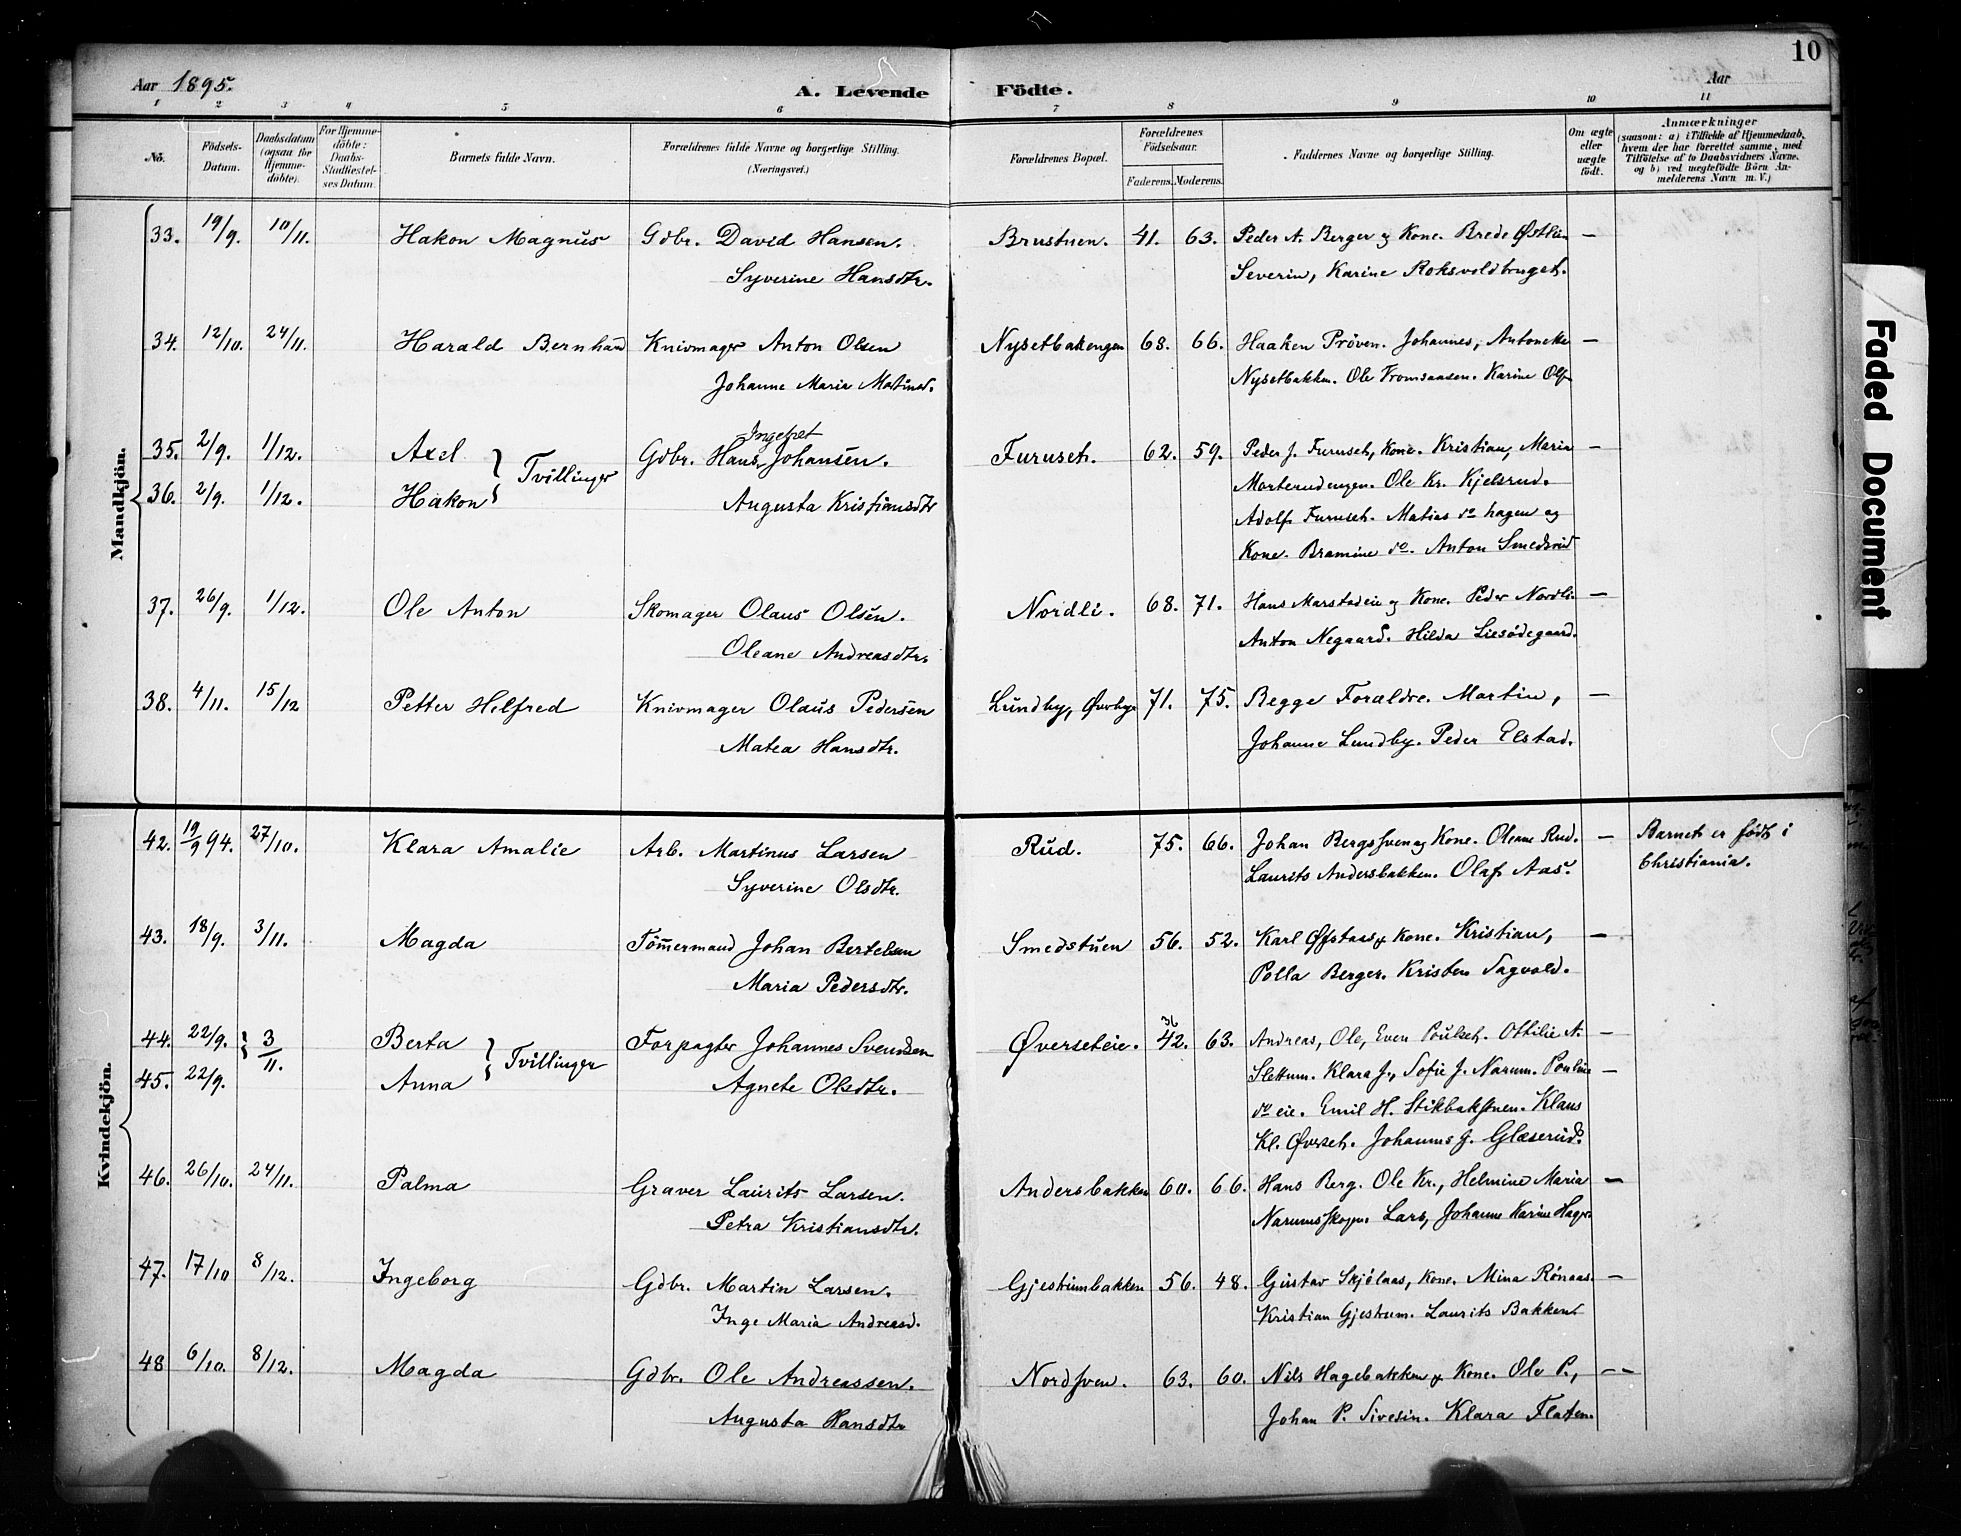 10
Aar 1895. A. Levende Födte. Aar
1 2 3 4 5 6 7 8 9 10 11
No. Födsels-Datum. Daabsdatum (ogsaa for Hjemme-döbte). For Hjemme-döbte: Daabs-Stadfæstel-ses Datum. Barnets fulde Navn. Forældrenes fulde Navne og borgerlige Stilling. (Næringsvei.) Forældrenes Bopæl. Forældrenes Födselsaar. Faderens. Moderens. Faddernes Navne og borgerlige Stilling. Om ægte eller uægte födt. Anmærkninger (saasom: a) i Tilfælde af Hjemmedaab, hvem der har forrettet samme, med Tilföielse af to Daabsvidners Navne, og b) ved uægtefödte Börn An-melderens Navn m. V.)
Mandkjön.
33. 19/9. 10/11. Hakon Magnus Gdbr. David Hansen. Brustuen. 41. 63. Peder A. Berger og Kone. Brede Østlien —
Syverine Hansdtr. Severin, Karine Roksvoldbruget.
34. 12/10. 24/11. Harald Bernhard Knivmager Anton Olsen Nysetbakengen 68. 66. Haaken Pröven. Johannes, Antonette —
Johanne Maria Matinsd. Nysetbakken. Ole Tromsaasen. Karine Ols
Ingebret
35. 2/9. 1/12. Axel } Tvillinger Gdbr. Hans Johansen. Furuset. 62. 59. Peder J. Furuset, Kone. Kristian, Maria —
36. 2/9. 1/12. Hakon Augusta Kristiansdtr Morterudengen. Ole Kr. Kjelsrud.
Adolf Furuset. Matias do hagen og
Kone. Bramine do. Anton Smedsrud
37. 26/9. 1/12. Ole Anton Skomager Olaus Olsen. Nordli. 68. 71. Hans Marstadeie og Kone. Peder Nordli —
Oleane Andreasdtr. Anton Negaard. Hilda Liesödegaard.
38. 4/11. 15/12 Petter Hilfred Knivmager Olaus Pedersen Lundby, Øverbye 71. 75. Begge Forældre. Martin, —
Matea Hansdtr. Johanne Lundby. Peder Elstad.
Kvindekjön.
42. 19/9 94. 27/10. Klara Amalie Arb. Martinus Larsen Rud. 75. 66. Johan Bergssven og Kone. Oleane Rud. — Barnet er födt i
Syverine Olsdtr. Laurits Andersbakken. Olaf Aas. Christiania.
43. 18/9. 3/11. Magda Tömmermand Johan Bertelsen Smedstuen 56. 52. Karl Øfstaas og Kone. Kristian, —
Maria Pedersdtr. Polla Berger. Kristen Sagvold.
36
44. 22/9. } 3/11. Berta } Tvillinger Forpagter Johannes Svendsen Øverseteie. 42. 63. Andreas, Ole, Even Poulset. Ottilie N. —
45. 22/9. Anna Agnete Olsdtr. Slettum. Klara J., Sofie J. Narum. Pouline —
do eie. Emil H. Stikbakstuen. Klaus
Kl. Øverset. Johannes J. Glæserud.
46. 26/10. 24/11. Palma Graver Laurits Larsen. Andersbakken 60. 66. Hans Berg. Ole Kr., Helmine Maria —
Petra Kristiansdtr. Narumsskogen. Lars, Johanne Karine Hagen
47. 17/10 8/12. Ingeborg Gdbr. Martin Larsen. Gjestrumbakken 56. 48. Gustav Skjölaas, Kone. Mina Rönaas. —
Inge Maria Andreasd. Kristian Gjestrum. Laurits Bakken
48 6/10. 8/12. Magda Gdbr. Ole Andreassen. Nordsven. 63. 60. Nils Hagebakken og Kone. Ole P., — —
Augusta Hansdtr Johan P. Sivesin. Klara Flaten.
Faded Document